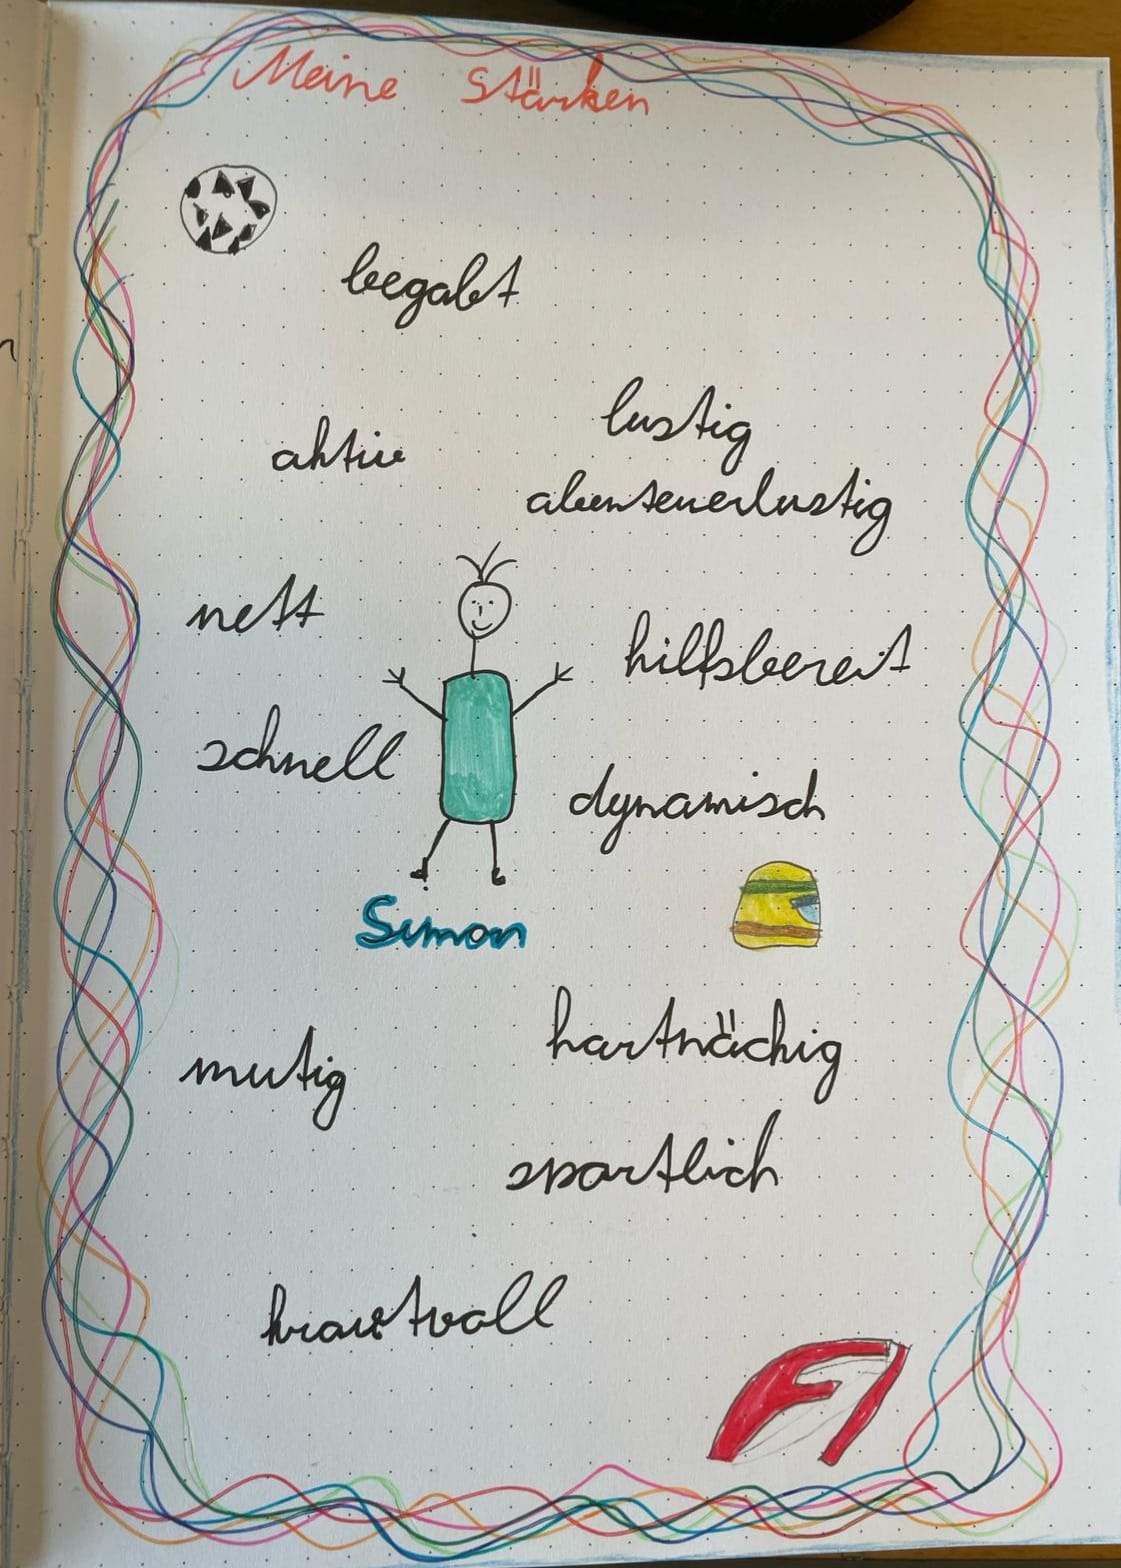 Meine Stärken
begabt
lustig
aktiv
abenteuerlustig
nett
hilfsbereit
schnell
dynamisch
Simon
hartnäckig
mutig
sportlich
kraftvoll
F1